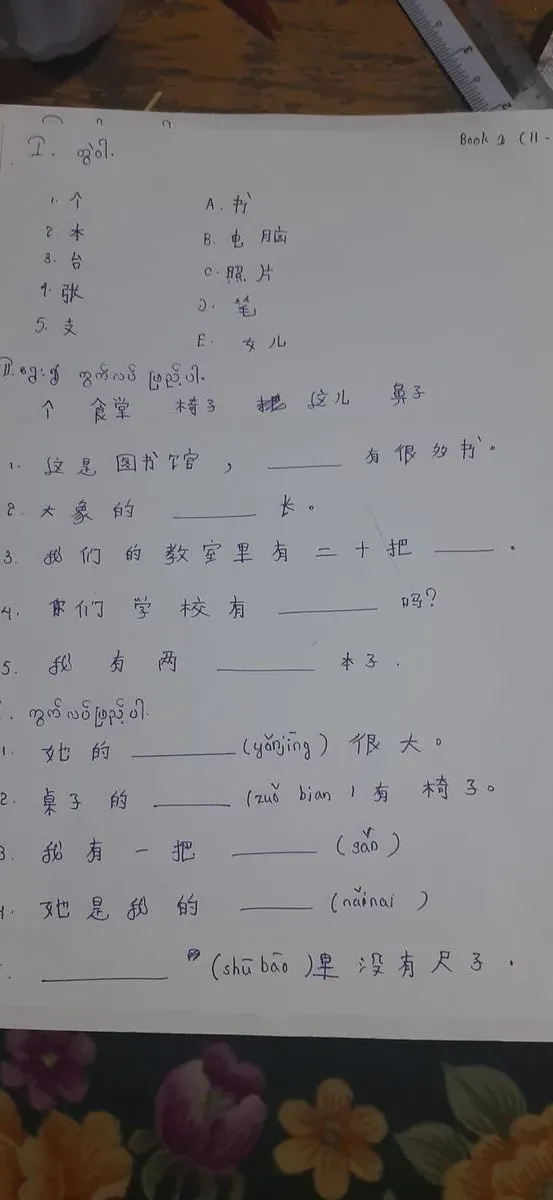 Book 1 (11 -
I. တွဲပါ.
1. 个 A. 书
2. 本 B. 电脑
3. 台 C. 照片
4. 张 D. 笔
5. 支 E. 女儿
II. ရွေး၍ ကွက်လပ် ဖြည့်ပါ.
个 食堂 椅子 这儿 鼻子
1. 这是图书馆, ______ 有很多书。
2. 大象的 ______ 长。
3. 我们的教室里有二十把 ______ .
4. 你们学校有 ______ 吗?
5. 我有两 ______ 本子.
. ကွက်လပ်ဖြည့်ပါ.
1. 她的 ______ (yǎnjīng) 很大。
2. 桌子的 ______ (zuǒ bian) 有椅子。
3. 我有一把 ______ (sǎn)
4. 她是我的 ______ (nǎinai)
______ (shū bāo) 里没有尺子.